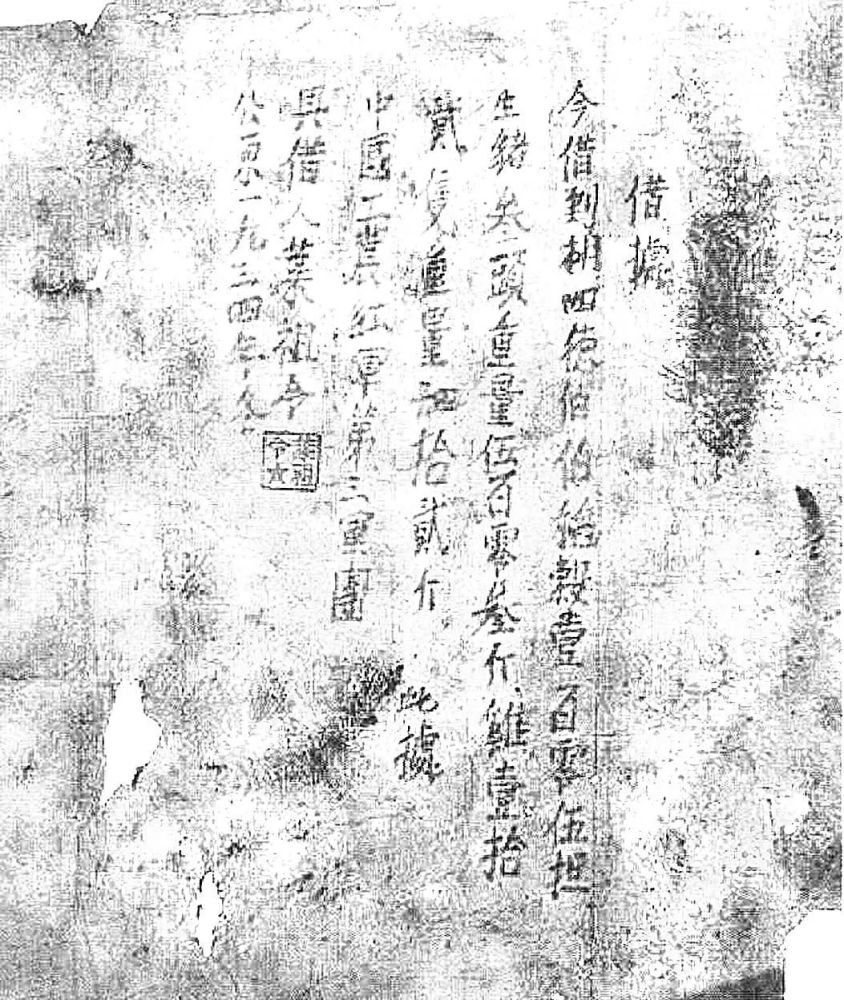 借據
今借到胡四德伯伯稻穀壹百零伍担
生豬叁頭重量伍百零叁斤雞壹拾
貳隻重量肆拾貳斤 此據
中國工農紅軍第三軍團
具借人葉祖令
公原一九三四年冬
葉祖令